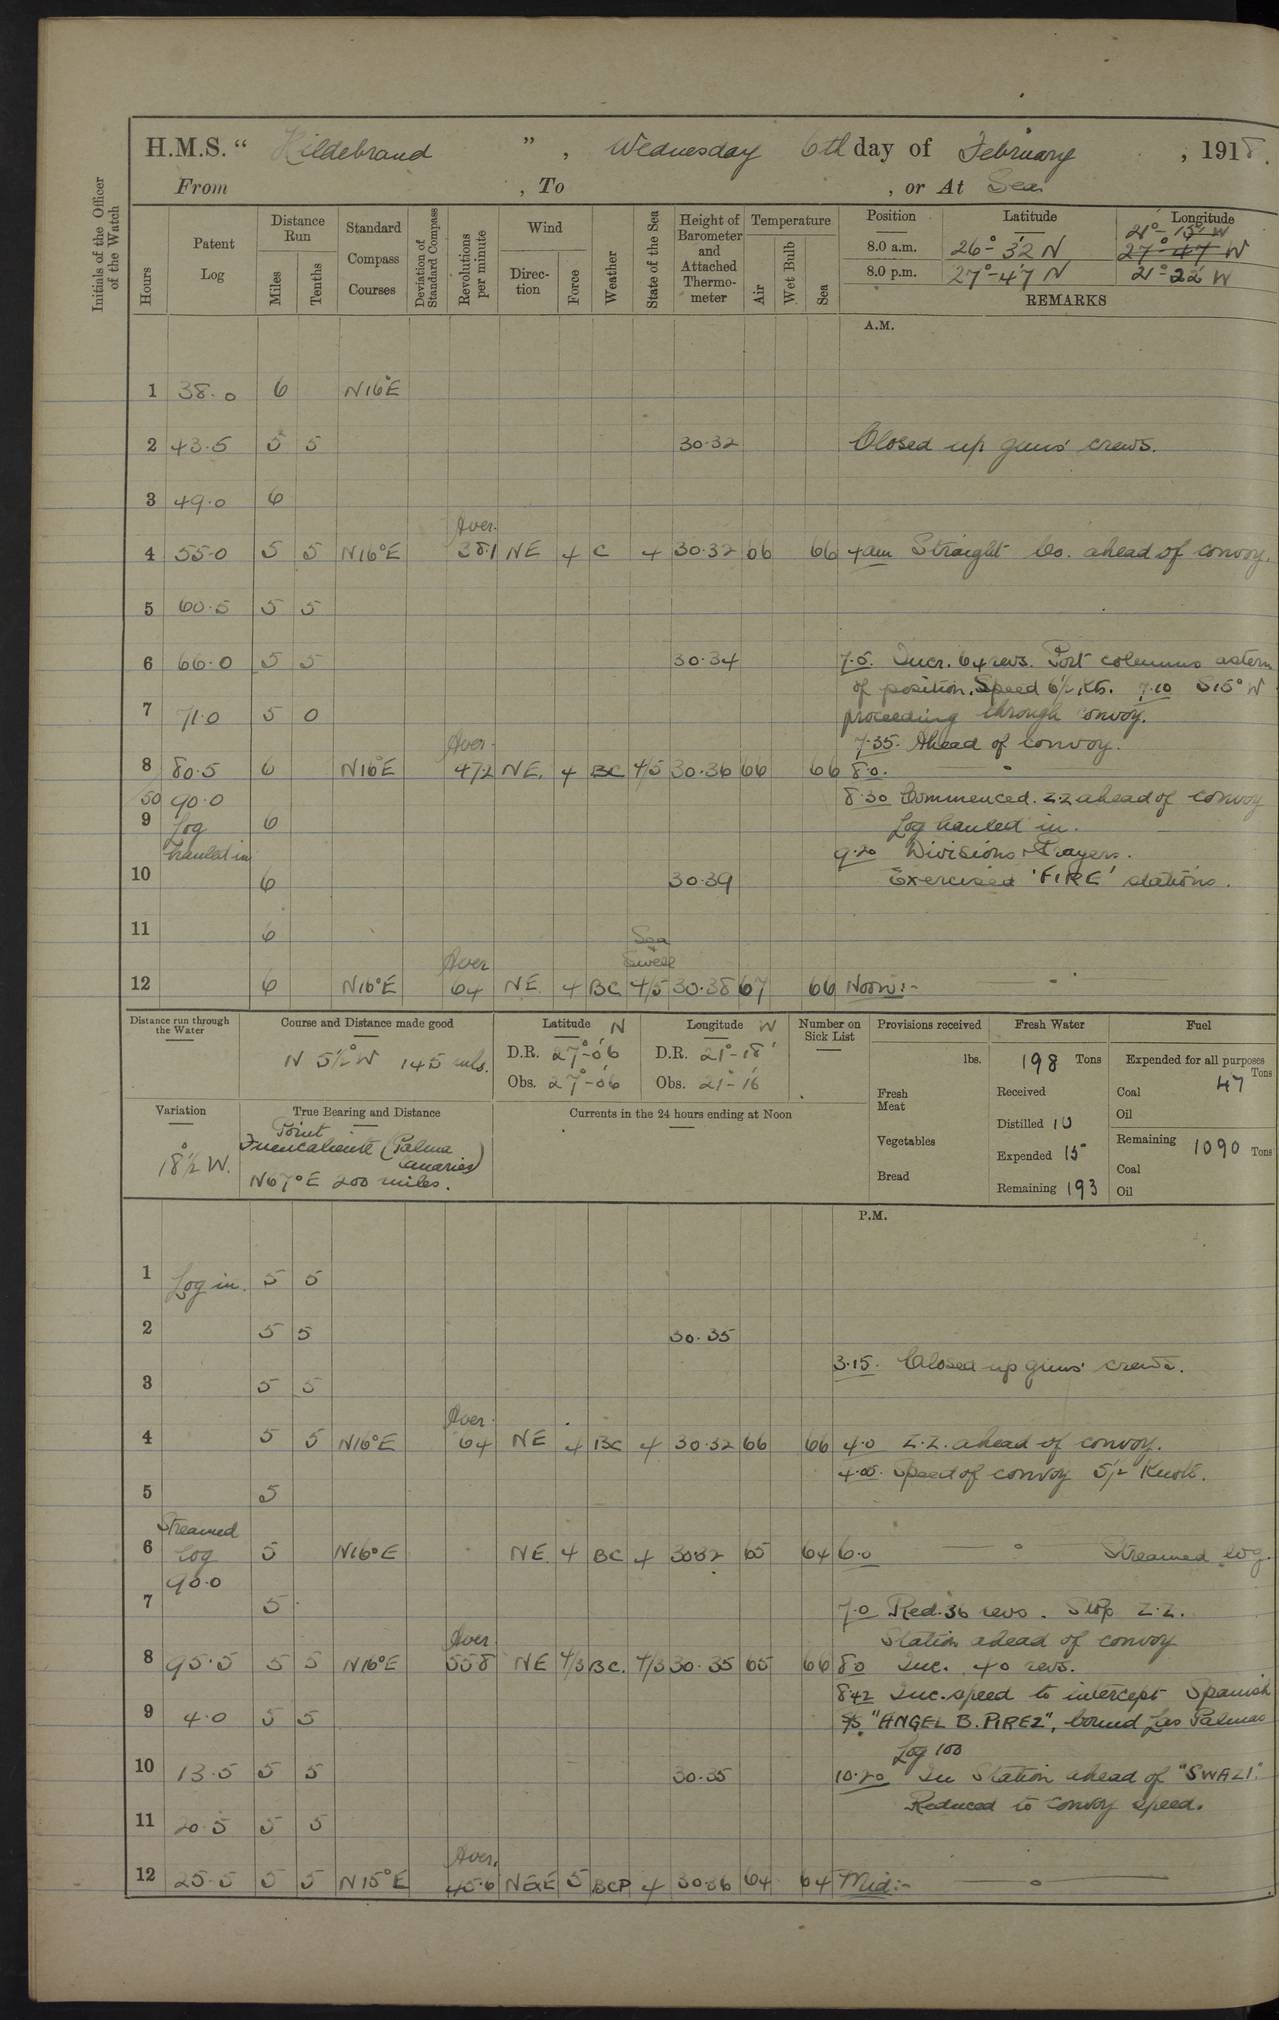 H.M.S. “ Hildebrand ” , Wednesday 6th day of February , 1918.
From , To , or At Sea
Initials of the Officer of the Watch
Hours
Patent Log
Distance Run
Miles
Tenths
Standard Compass Courses
Deviation of Standard Compass
Revolutions per minute
Wind
Direc-tion
Force
Weather
State of the Sea
Height of Barometer and Attached Thermo-meter
Temperature
Air
Wet Bulb
Sea
Position Latitude Longitude
21°-15' W
8.0 a.m. 26°-32' N 27°-47 W
8.0 p.m. 27°-47 N 21°-22' W
REMARKS
A.M.
1 38.0 6 N16°E
2 43.5 5 5 30.32 Closed up guns' crews.
3 49.0 6
Aver.
4 55.0 5 5 N16°E 38.1 NE 4 C 4 30.32 66 66 4am Straight Co. ahead of convoy.
5 60.5 5 5
6 66.0 5 5 30.34 7.5. Incr. 64 revs. Port columns astern
of position. Speed 6½ Kts. 7.10 S15°W
7 71.0 5 0 proceeding through convoy.
Aver. 7.35. Ahead of convoy.
8 80.5 6 N16°E 47.2 NE. 4 BC 4/5 30.36 66 66 8.0. "
50 90.0 8.30 Commenced. Z.Z ahead of convoy
9 Log 6 Log hauled in.
hauled in 9.20 Divisions & Prayers.
10 6 30.39 Exercised 'FIRE' stations.
11 6 Sea
Aver Swell
12 6 N16°E 64 NE 4 BC 4/5 30.38 67 66 Noon:- "
Distance run through the Water
Course and Distance made good
N 5½°W 145 mls.
Latitude N
D.R. 27°-06'
Obs. 27°-06
Longitude W
D.R. 21°-18'
Obs. 21°-16
Number on Sick List
Provisions received
lbs.
Fresh Meat
Vegetables
Bread
Fresh Water
198 Tons
Received
Distilled 10
Expended 15
Remaining 193
Fuel
Expended for all purposes
Tons
Coal 47
Oil
Remaining 1090 Tons
Coal
Oil
Variation
18½° W.
True Bearing and Distance
Point
Fuencaliente (Palma
Canaries)
N67°E 200 miles.
Currents in the 24 hours ending at Noon
P.M.
1 Log in. 5 5
2 5 5 30.35
3.15. Closed up guns' crews.
3 5 5
Aver.
4 5 5 N16°E 64 NE 4 BC 4 30.32 66 66 4.0 Z.Z. ahead of convoy.
4.05. Speed of convoy 5½ Knots.
5 5
Streamed
6 log 5 N16°E NE. 4 BC 4 30.32 65 64 6.0 " Streamed log.
90.0
7 5 7.0 Red. 36 revs. Stop Z.Z.
Aver Station ahead of convoy
8 95.5 5 5 N16°E 55.8 NE 4/5 BC. 4/5 30.35 65 66 8.0 Inc. 40 revs.
8.42 Inc. speed to intercept Spanish
9 4.0 5 5 S/S. "ANGEL B. PIREZ", bound Las Palmas
Log 100
10 13.5 5 5 30.35 10.20 In Station ahead of "SWAZI."
Reduced to convoy speed.
11 20.5 5 5
Aver.
12 25.5 5 5 N15°E 45.6 5 BCP 4 30.36 64 64 Mid:- "